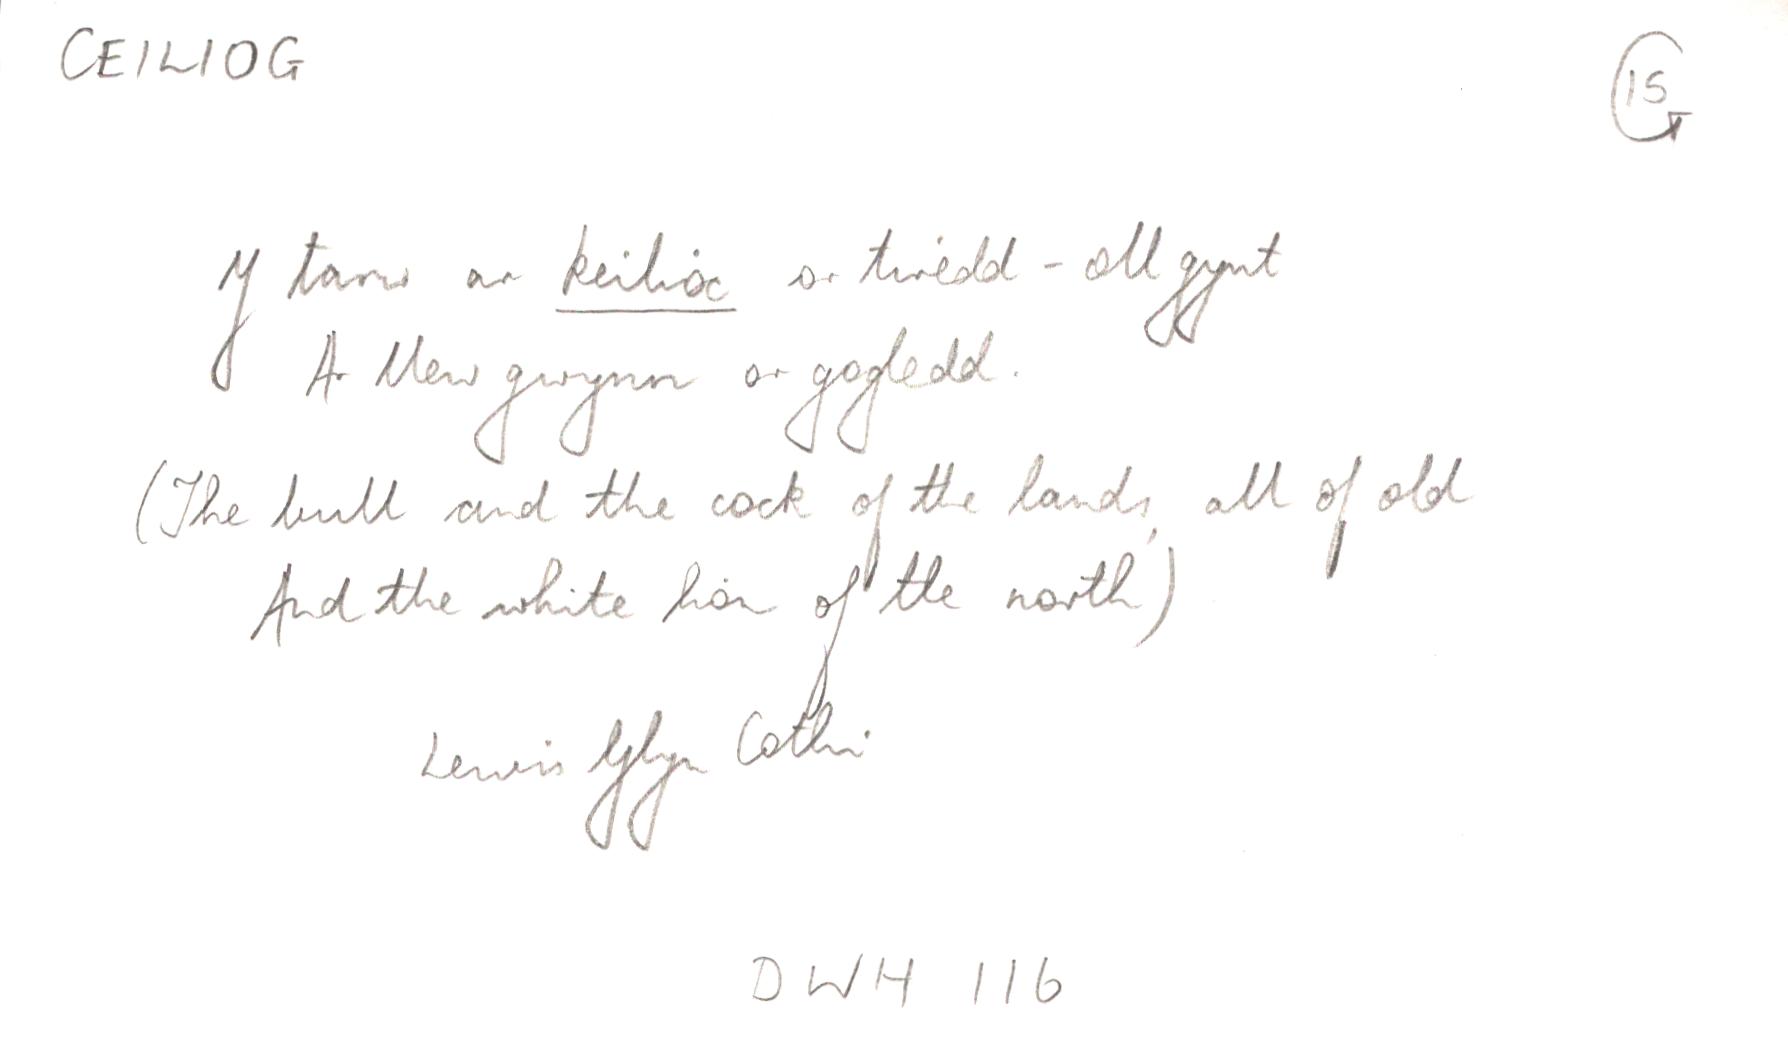 CEILIOG
15
Y tarw ar keilioc or tiredd - oll gynt
Ar llew gwynn or gogledd.
(The bull and the cock of the lands, all of old
And the white lion of the north)
Lewis Glyn Cothi
DWH 116